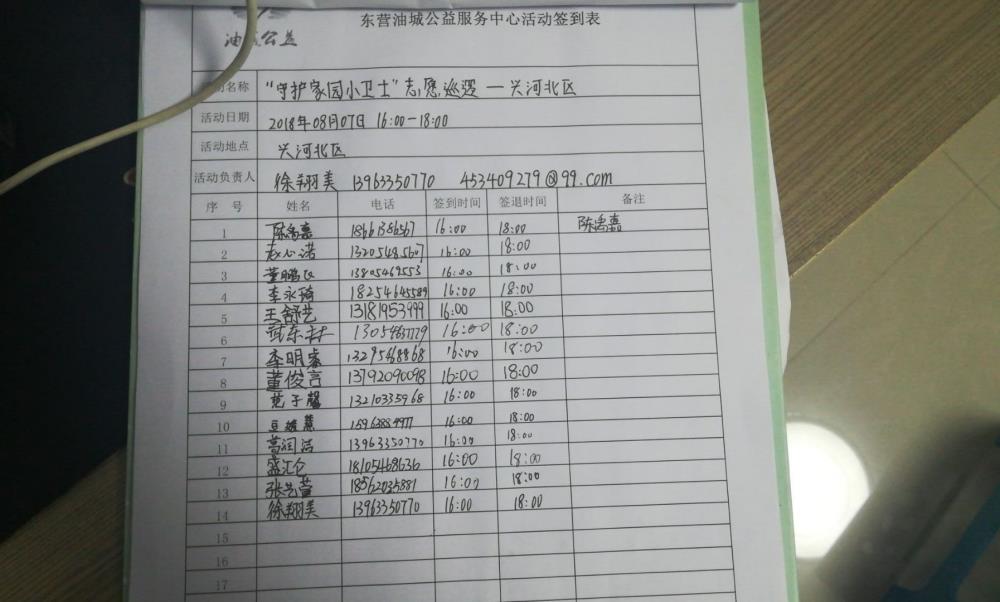 东营油城公益服务中心活动签到表
油城公益
动名称 "守护家园小卫士"志愿巡逻一兴河北区
活动日期 2018年08月07日 16:00-18:00
活动地点 兴河北区
活动负责人 徐翔美 13963350770 453409279@99.com
序 号 姓名 电话 签到时间 签退时间 备注
1 陈禹嘉 18661386567 16:00 18:00 陈禹嘉
2 赵心诺 13205485607 16:00 18:00
3 董鹏飞 13805469553 16:00 18:00
4 李永琦 18254645589 16:00 18:00
5 王舒艺 13181953999 16:00 18:00
6 16:00 18:00
7 李明睿 13295468868 16:00 18:00
8 董俊言 13792090098 16:00 18:00
9 范子馨 13210335968 16:00 18:00
10 16:00 18:00
11 葛润洁 13963350770 16:00 18:00
12 盛汇仑 18105468636 16:00 18:00
13 张艺萱 18562035881 16:00 18:00
14 徐翔美 13963350770 16:00 18:00
15
16
17